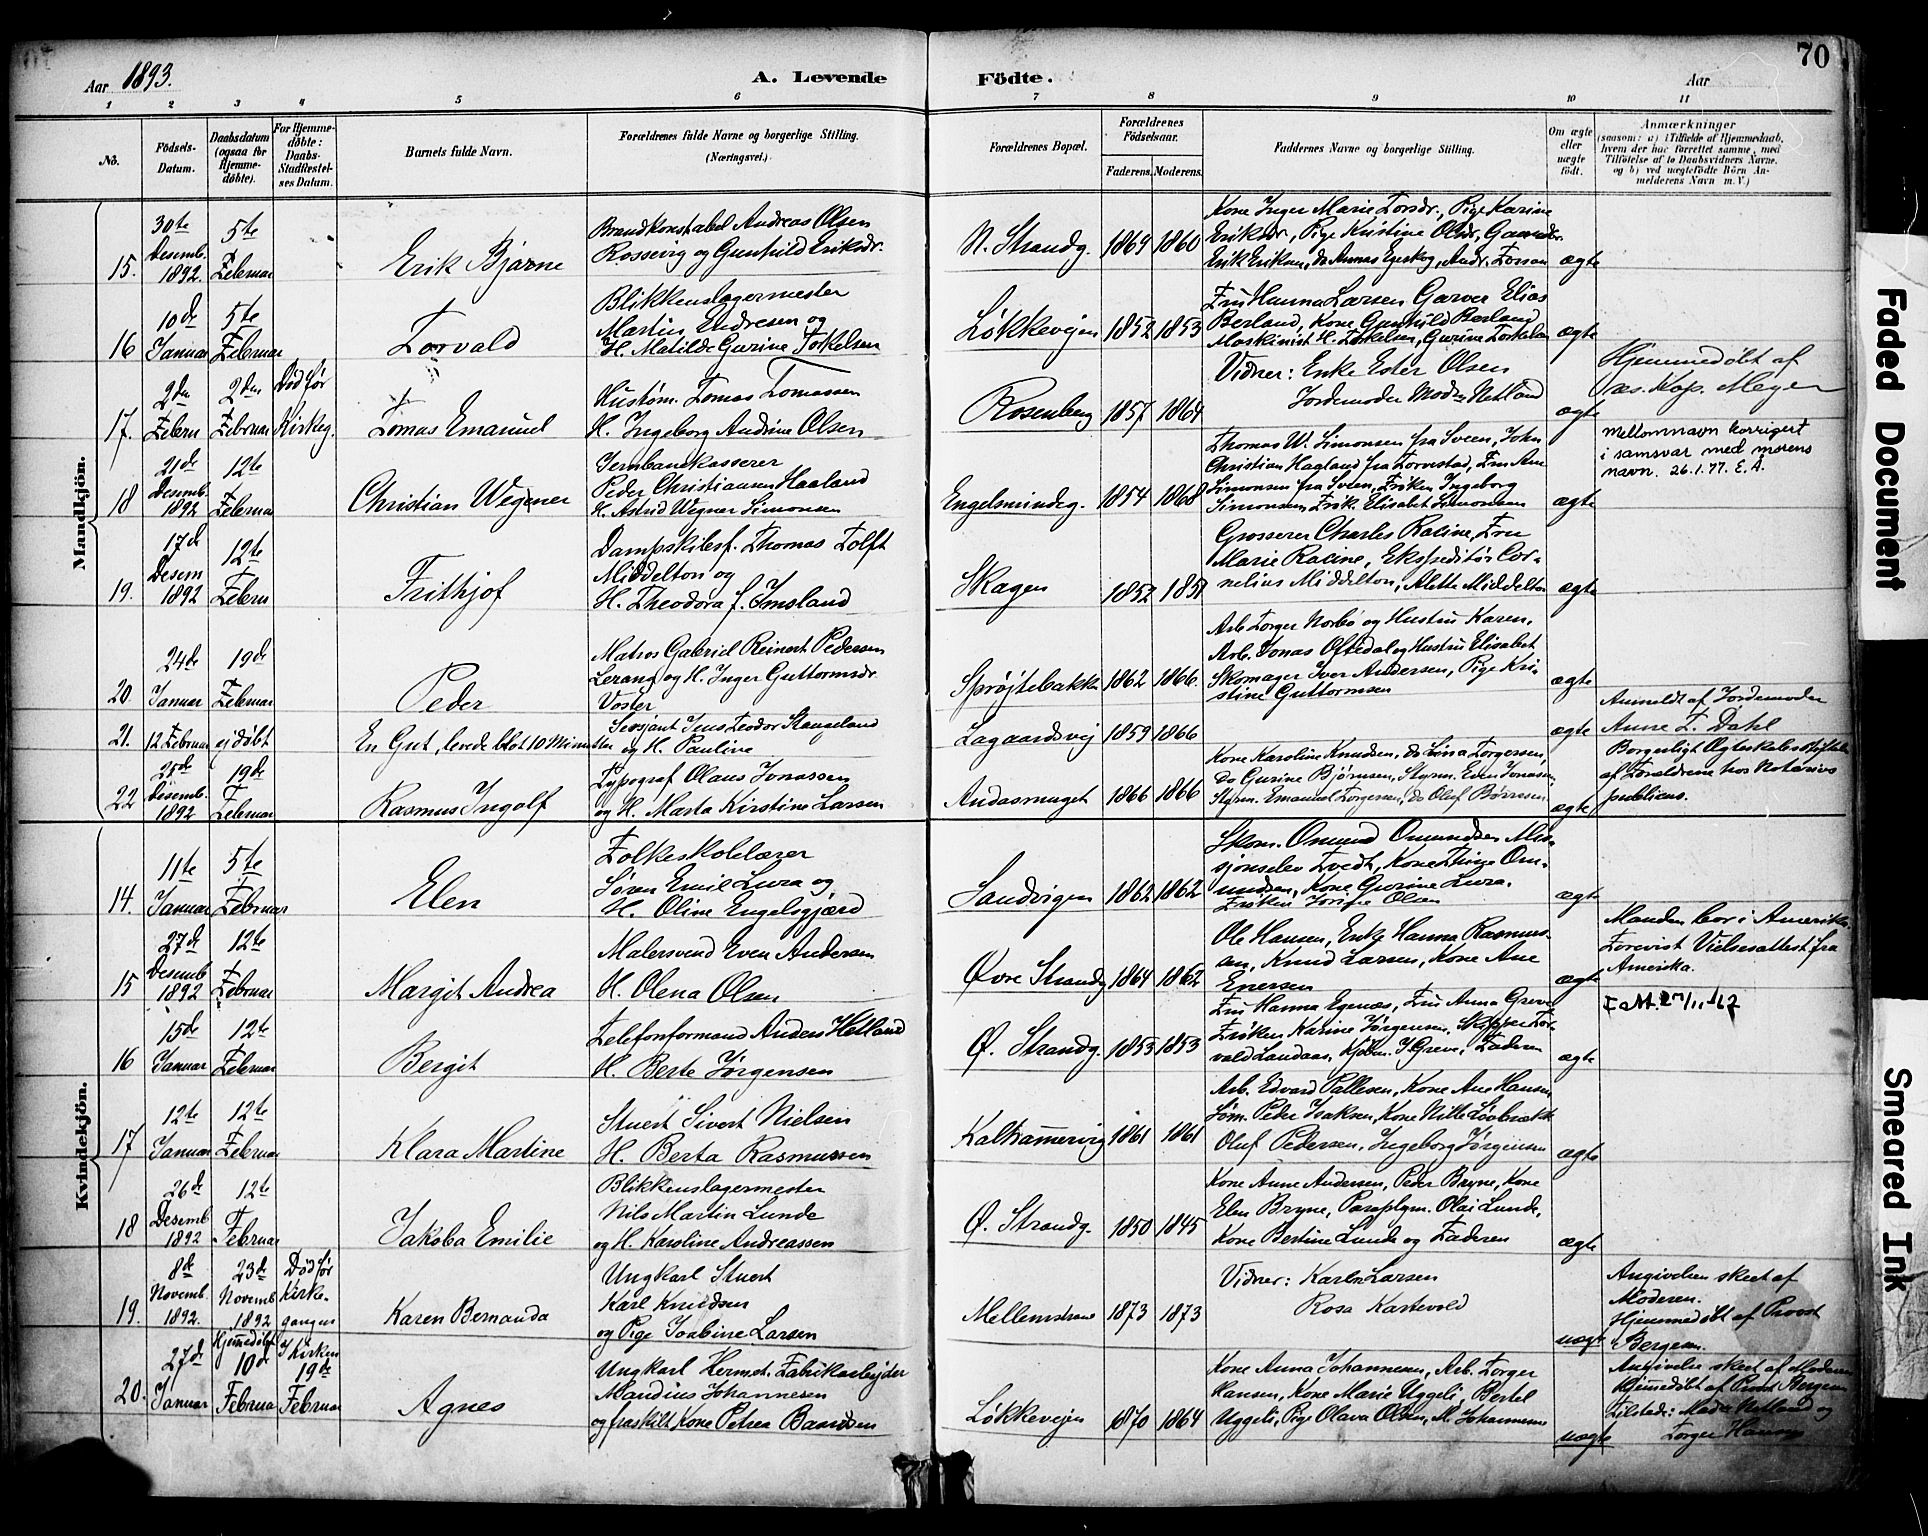 70
Aar 1893.
A. Levende
Födte.
Aar
1 2 3 4 5 6 7 8 9 10 11
No.
Födsels-
Datum.
Daabsdatum
(ogsaa for
Hjemme-
döbte).
For Hjemme-
döbte:
Daabs-
Stadfæstel-
ses Datum.
Barnets fulde Navn.
Forældrenes fulde Navne og borgerlige Stilling.
(Næringsvei.)
Forældrenes Bopæl.
Forældrenes
Födselsaar.
Faderens. Moderens.
Faddernes Navne og borgerlige Stilling.
Om ægte
eller
uægte
födt.
Anmærkninger
(saasom: a) i Tilfælde af Hjemmedaab,
hvem der har forrettet samme, med
Tilföielse af to Daabsvidners Navne,
og b) ved uægtefödte Börn An-
melderens Navn m. V.)
Mandkjön.
15.
30te
Desemb.
1892.
5te
Februar
Erik Bjarne
Brandkonstabel Andreas Olsen
Rossevig og Gunhild Eriksdr.
N. Strandg.
1869 1860
Kone Inger Marie Torsdr., Pige Karine
Eriksdr, Pige Kristine Olsdr,
Erik Eriksen, do Annas Egeskog, Andr. Torsen
ægte
16
10de
Januar
5te
Februar
Torvald
Blikkenslagermester
Martin Endresen og
H. Matilde Gurine Torkelsen
Løkkevejen
1852 1853
Fru Hanna Larsen Garver Elias
Berland, Kone Gunhild Berland
Maskinist H. Torkelsen, Gurine Torkelsen
ægte
17.
2den
Febru
2den
Februar
Død før
Kirkeg.
Tomas Emanuel
Hustøm. Tomas Tomassen
H. Ingeborg Andrine Olsen
Rosenberg
1857 1864
Vidner: Enke Ester Olsen
Jordemoder Mod Netland
ægte
Hjemmedøbt af
res. Kap. Meyer
18
21de
Desemb.
1892
12te
Februar
Christian Wegner
Jernbanekasserer
Peder Christiansen Haaland
H. Astrid Wegner Simonsen
Engelsmindeg.
1854 1868
Thomas W. Simonsen fra Sveen, John
Christian Haaland fra Tornstad, Fru Ane
Simonsen fra Sveen, Frøken Ingeborg
Simonsen Frøk. Elisabet Simonsen
ægte
mellomnavn korrigert
i samsvar med morens
navn. 26.1.77. E.A.
19.
17de
Desem
1892
12te
Febru
Frithjof
Dampskibsf. Thomas Toft
Middelton og
H. Theodora f. Imsland
Skagen
1852 1851
Grosserer Charles Racine, Fru
Marie Racine, Ekspeditør Cor-
nelius Middelton, Alette Middelton
ægte
20
24de
Januar
19de
Februar
Peder
Matros Gabriel Reinert Pedersen
Lerang og H. Inger Guttormsdr
Voster
Sprøjtebakk
1862 1866
Arb. Torger Norbø og Hustru Karen,
Arb. Jonas Oftedal og Hustru Elisabet
Skomager Iver Andersen, Pige Kri-
stine Guttormsen
ægte
21.
12 Februar
ej døbt
En Gut, levede blot 10 Minutter
Sersjant Jens Teodor Stangeland
og H. Pauline
Lagaardsvej
1859 1866
ægte
Anmeldt af Jordemoder
Anne T. Dahl
22
25de
Desemb.
1892
19de
Februar
Rasmus Ingolf
Typograf Olaus Jonassen
og H. Marta Kirstine Larsen
Andasmuget
1866 1866
Kone Karoline Knudsen, do Lina Torgersen,
Do Gurine Bjørnsen, Styrm. Even Jonasen
Styrm. Emanuel Torgersen, do Oluf Børresen
ægte
Borgerligt Ægteskab stiftet
af Foraldrene hos Notarius
publicus.
Kvindekjön.
14.
11te
Januar
5te
Februar
Elen
Folkeskolelærer
Søren Emil Lura og
H. Oline Engelsgjærd
Sandvigen
1862 1862
Skom. Omund Omundsen Mis-
sjonselev Tvedt, Kone Thine Om-
undsen, Kone Gurine Lura,
Frøken Olsen
ægte
15
27de
Desemb
1892
12te
Februar
Margit Andrea
Malersvend Even Andersen
H. Olena Olsen
Øvre Strandg
1864 1862
Ole Hansen, Enke Hanna Rasmus-
sen, Knud Larsen, Kone Ane
Enersen
ægte
Manden bor i Amerika.
Forevist Vielsesattest fra
Amerika.
16
15de
Januar
12te
Februar
Bergit
Telefonformand Anders Hetland
H. Berte Jørgensen
Ø. Strandg.
1853 1853
Fru Hanna Egenæs, Fru Anna Greve
Frøken Karine Jørgensen, Skipper Tor-
vald Landaas, Kjøbm. J Greve, Faderen
ægte
17
12te
Januar
12te
Februar
Klara Martine
Stuert Sivert Nielsen
H. Berta Rasmussen
Kalhammervig
1861 1861
Arb. Edvard Pallesen, Kone Ane Hansen
Søm. Peder Isaksen, Kone Nille Løvbrekk
Oluf Pedersen, Ingeborg Jørgensen
ægte
18
26de
Desemb
1892
12te
Februar
Jakoba Emilie
Blikkenslagermester
Nils Martin Lunde
og H. Karoline Andreassen
Ø. Strandg.
1850 1845
Kone Anne Andersen, Peder Bryne, Kone
Elen Bryne, Olai Lunde,
Kone Bertine Lunde og Faderen
ægte
19.
8de
Novemb.
1892.
23de
Novemb
1892
Død før
Kirke-
gangen
Karen Bernanda
Ungkarl Stuert
Karl Knudsen
og Pige Joabine Larsen
Mellemstrae
1873 1873
Vidner: Karl Larsen
Rosa Kartevold
uægte
Angivelsen skeet af
Moderen.
Hjemmedøbt af Provst
Bergesen.
20.
27de
Januar
Hjemmedøbt
10de
Februar
I Kirken
19de
Februar
Agnes
Ungkarl Hermet. Fabrikarbejder
Mandius Johannesen
og fraskilt Kone Petrea Baardsen
Løkkevejen
1870 1864
Kone Anna Johannesen, Arb. Torger
Hansen, Kone Marie Uggeli, Bertel
Uggeli, Pige Olava Olsen, M. Johannesen
uægte
Angivelse skeet af Moderen
Hjemmedøbt af Provst Bergesen
Tilstede: Mod Netland og
Torger Hansen
Faded Document
Smeared Ink